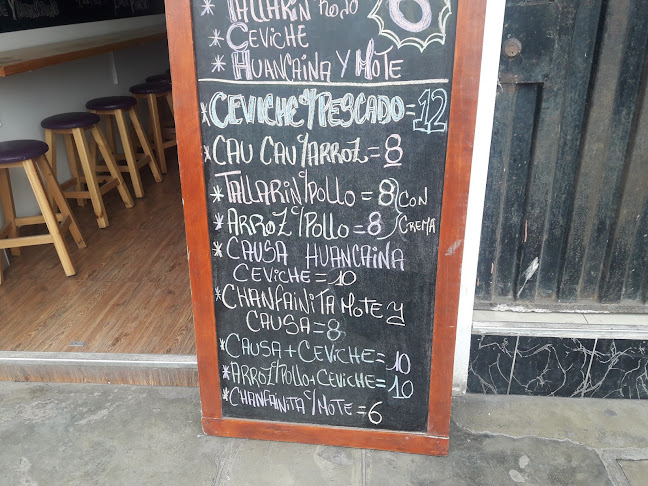 * TALLARIN ROJO
* CEVICHE
* HUANCAINA Y MOTE
6
* CEVICHE C/ PESCADO = 12
* CAU CAU C/ ARROZ = 8
* TALLARIN C/ POLLO = 8 CON
* ARROZ C/ POLLO = 8 CREMA
* CAUSA HUANCAINA
CEVICHE = 10
* CHANFAINITA MOTE Y
CAUSA = 8
* CAUSA + CEVICHE = 10
* ARROZ C/ POLLO + CEVICHE = 10
* CHANFAINITA C/ MOTE = 6